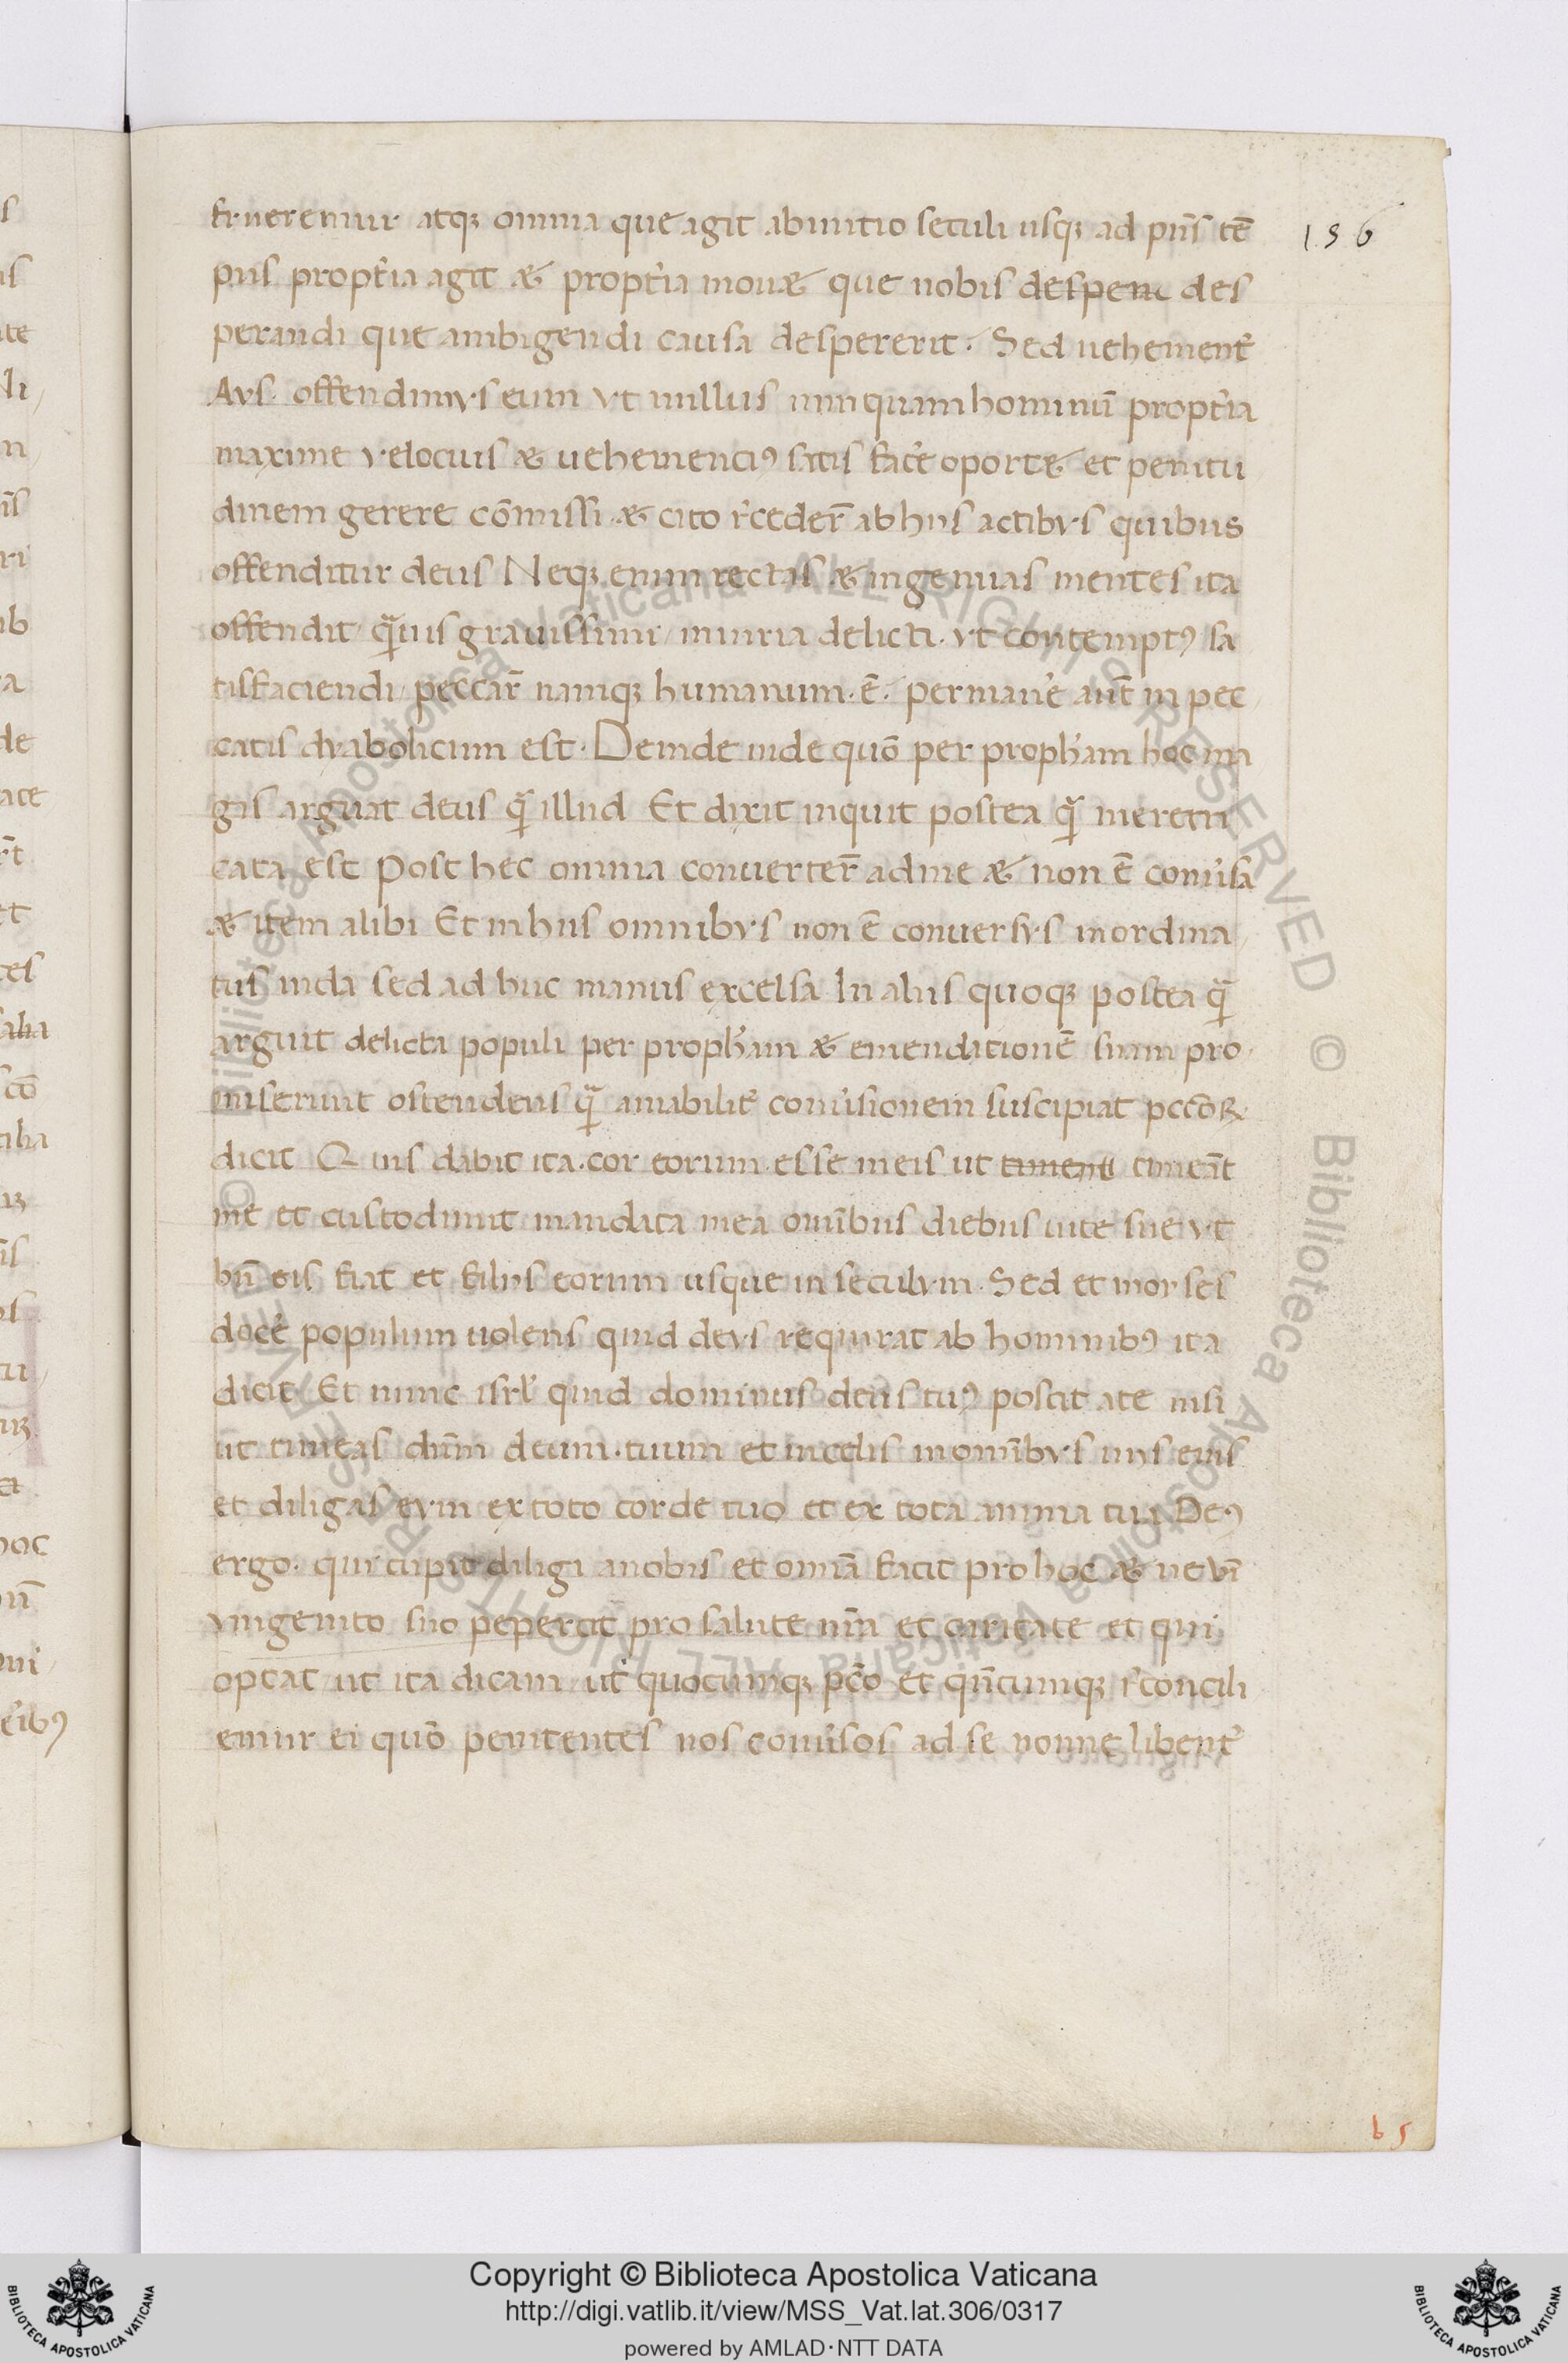 156
frueremur atqꝫ omnia que agit abinitio seculi usqꝫ ad pn̄s tē
pus propt̉ia agit & propt̉ia mou& que nobis despem des
perandi que ambigendi causa despererit. Sed uehement̉
Avs. offendimvs eum vt nullus nunquam hominū propt̉ia
maxime velocius & uehemenciꝰ satis fac̉e oport& et penitu
dinem gerere cōmissi & cito r̉ceder̄ abhiis actibvs quibus
offenditur deus Neqꝫ enim rectas & ingenuas mentes ita
offendit q̄uis grauissimi iniuria delicti. vt contemptꝰ sa
tisfaciendi peccar̄ namqꝫ humanum.ē. permaner̉ aut̄ in pec
catis dyabolicum est. Deinde uide quō per proph̉am hoc ma
gis arguat deus q̄ illud Et dixit inquit postea q̄ meretri
cata est Post hec omnia conuerter̄ adme & non ē conủsa
& item alibi Et inhiis omnibvs non ē conuersvs inordina
tus iuda sed ad huc manus excelsa In aliis quoqꝫ postea q̄
arguit delicta populi per proph̉am & emendationē suam pro
miserunt ostendens q̄ amabilit̉ conủsionem suscipiat pccōꝝ
dicit Quis dabit ita.cor eorum.esse meis ut timent timeāt
me et custodiunt mandata mea omībus diebus uite sue vt
bn̄ eis fiat et filiis eorum usque in seculvm. Sed et moyses
docer̉e populum uolens quid devs requirat ab hominibꝰ ita
dicit. Et nunc isrl̉ quid dominus deus tuꝰ poscit ate nisi
ut timeas dn̄m deum.tuum et incedis inomībvs uiis eius
et diligas evm ex toto corde tuo et ex tota anima tua Deꝰ
ergo. qui cupit diligi anobis et omīa facit pro hoc & ne vī
vnigenito suo pepercit pro salute nr̄a et caritate et qui
optat ut ita dicam ut quocumqꝫ pc̄o et qn̄cumqꝫ r̉concili
emur ei quō penitentes nos conủsos ad se nonne libent̉
b5
Copyright © Biblioteca Apostolica Vaticana
http://digi.vatlib.it/view/MSS_Vat.lat.306/0317
powered by AMLAD·NTT DATA
BIBLIOTECA APOSTOLICA VATICANA
BIBLIOTECA APOSTOLICA VATICANA